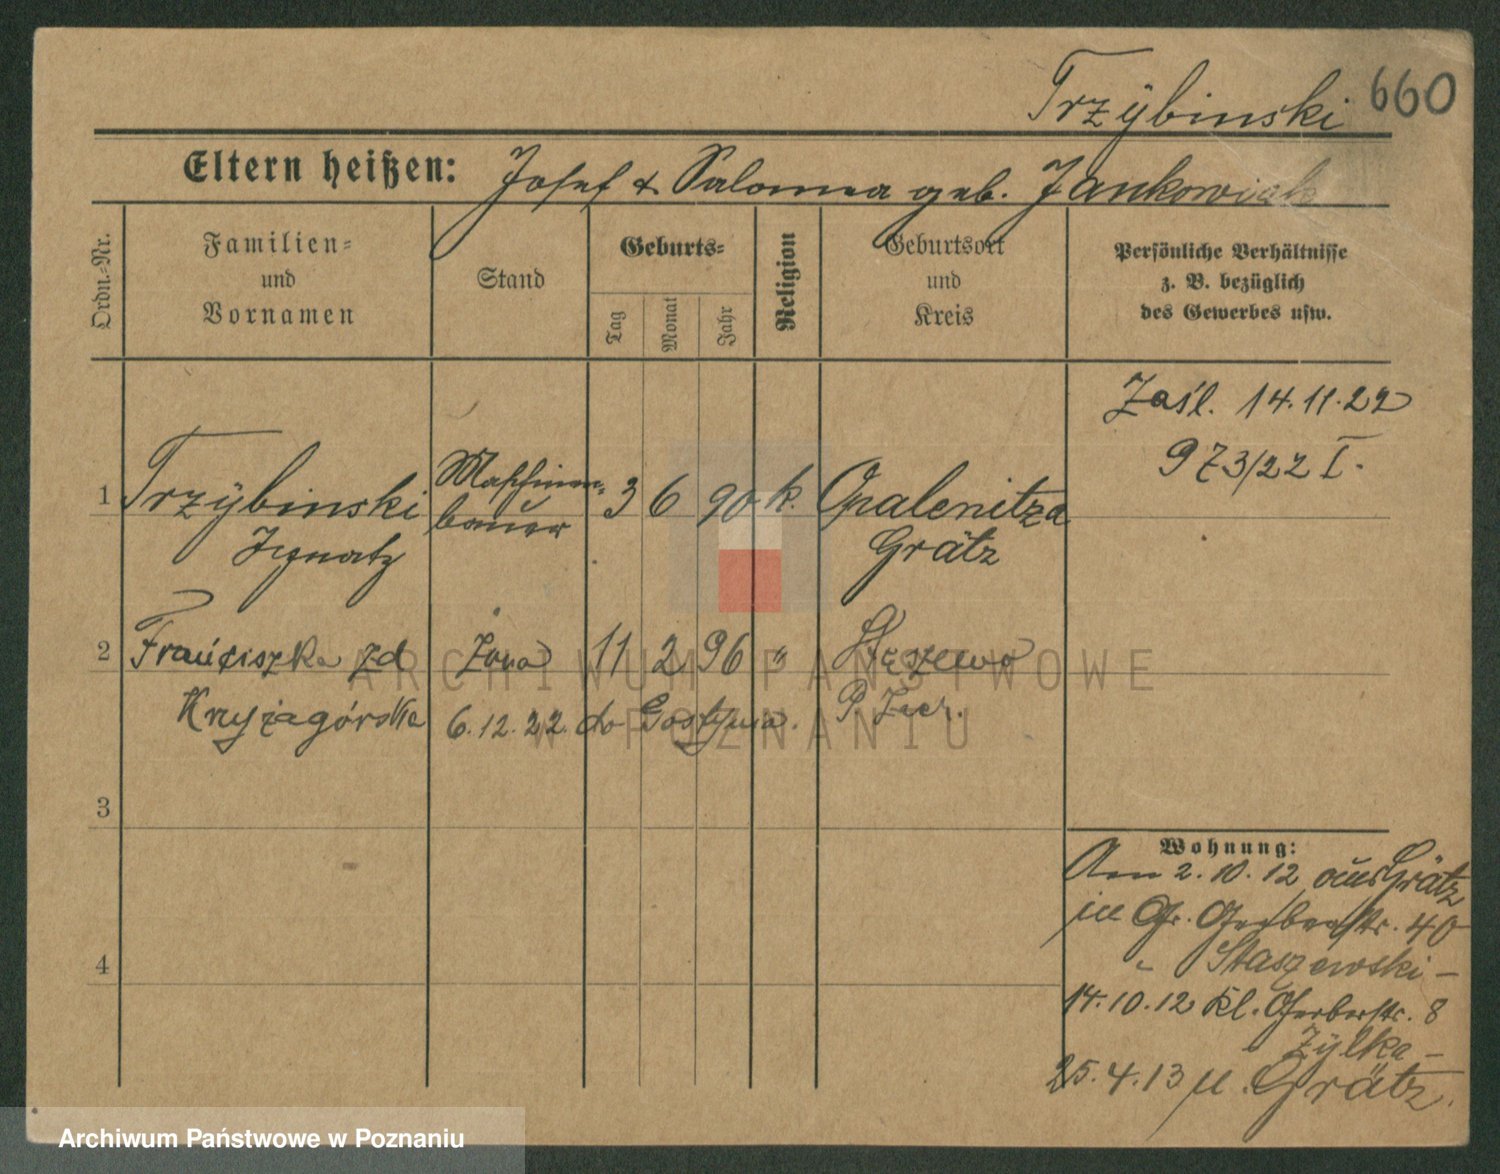 Trzÿbinski 660
Eltern heißen: Josef & Salomea geb. Jankowiak
Ordn.-Nr.
Familien-
und
Vornamen
Stand
Geburts-
Tag
Monat
Jahr
Religion
Geburtsort
und
Kreis
Persönliche Verhältnisse
z. B. bezüglich
des Gewerbes usw.
Zaśl. 14.11.22
973/22 I.
1 Trzÿbinski Maschinen- 3 6 90 k. Opalenitza
bauer
Ignatz Grätz
2 Franciszka zd żona 11 2 96 " Stęszewo
Krzyżagórska 6.12.22. do Gostynia. P. Zach.
3
4
Wohnung:
Am 2.10.12 aus Grätz
in Gr. Gerberstr. 40
" Staszewski -
14.10.12 Kl. Gerberstr. 8
Zÿlka -
25.4.13 n. Grätz.
ARCHIWUM PAŃSTWOWE
W POZNANIU
Archiwum Państwowe w Poznaniu